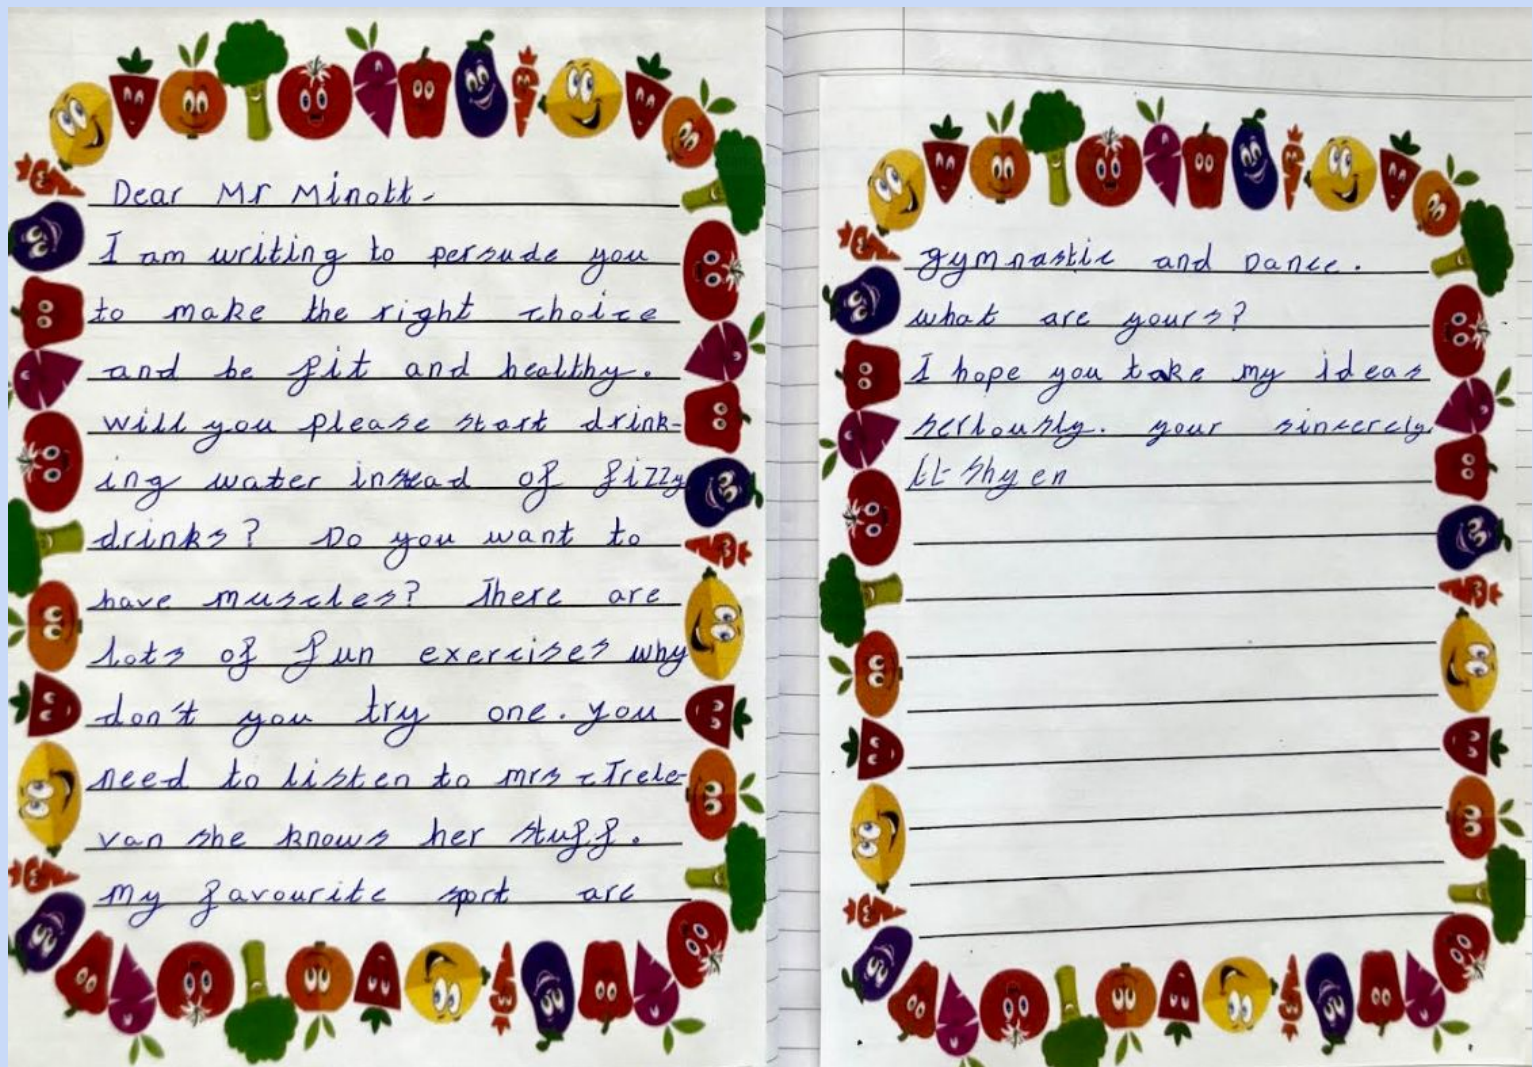 Dear Mr Minott-
I am writing to persude you
to make the right choice
and be fit and healthy.
Will you please start drink-
ing water instead of fizzy
drinks? Do you want to
have muscles? There are
lots of fun exercises why
don't you try one. You
need to listen to mrs Trele-
van she knows her stuff.
My favourite sport are
gymnastic and Dance.
what are yours?
I hope you take my ideas
seriously. your sincerely